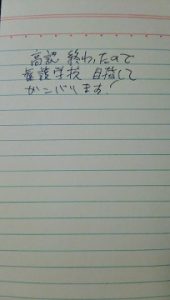 高認 終わったので
看護学校 目指して
ガンバります!